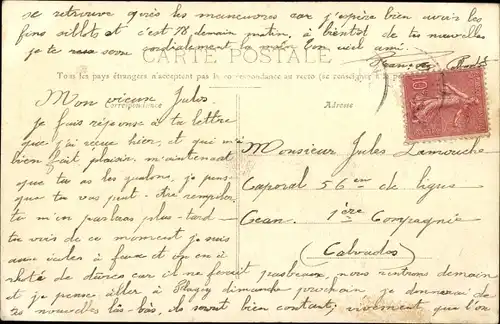 se retrouve après les manœuvres car j'espère bien avoir les
fins sillots et c'est 78 demain matin, à bientôt de tes nouvelles
je te serre cordialement la main ton vieil ami.
François
CARTE POSTALE
Tous les pays étrangers n'acceptent pas la correspondance au recto (se renseigner à la
Correspondance
Adresse
Mon vieux Jules
je fais réponse à ta lettre
que j'ai reçue hier, et qui m'a
bien fait plaisir. maintenant
que tu as les galons, je pense
que tu vas peut-être rempiler
tu m'en parleras plus-tard
tu vois de ce moment je suis
car il ne faisait pas beau, nous rentrons demain
et je pense aller à dimanche prochain je donnerai de
tes nouvelles là-bas, ils seront bien contents, vivement que l'on
Monsieur Jules Lamouche
Caporal 56 en de ligne
1ère Compagnie
(Calvados)
10